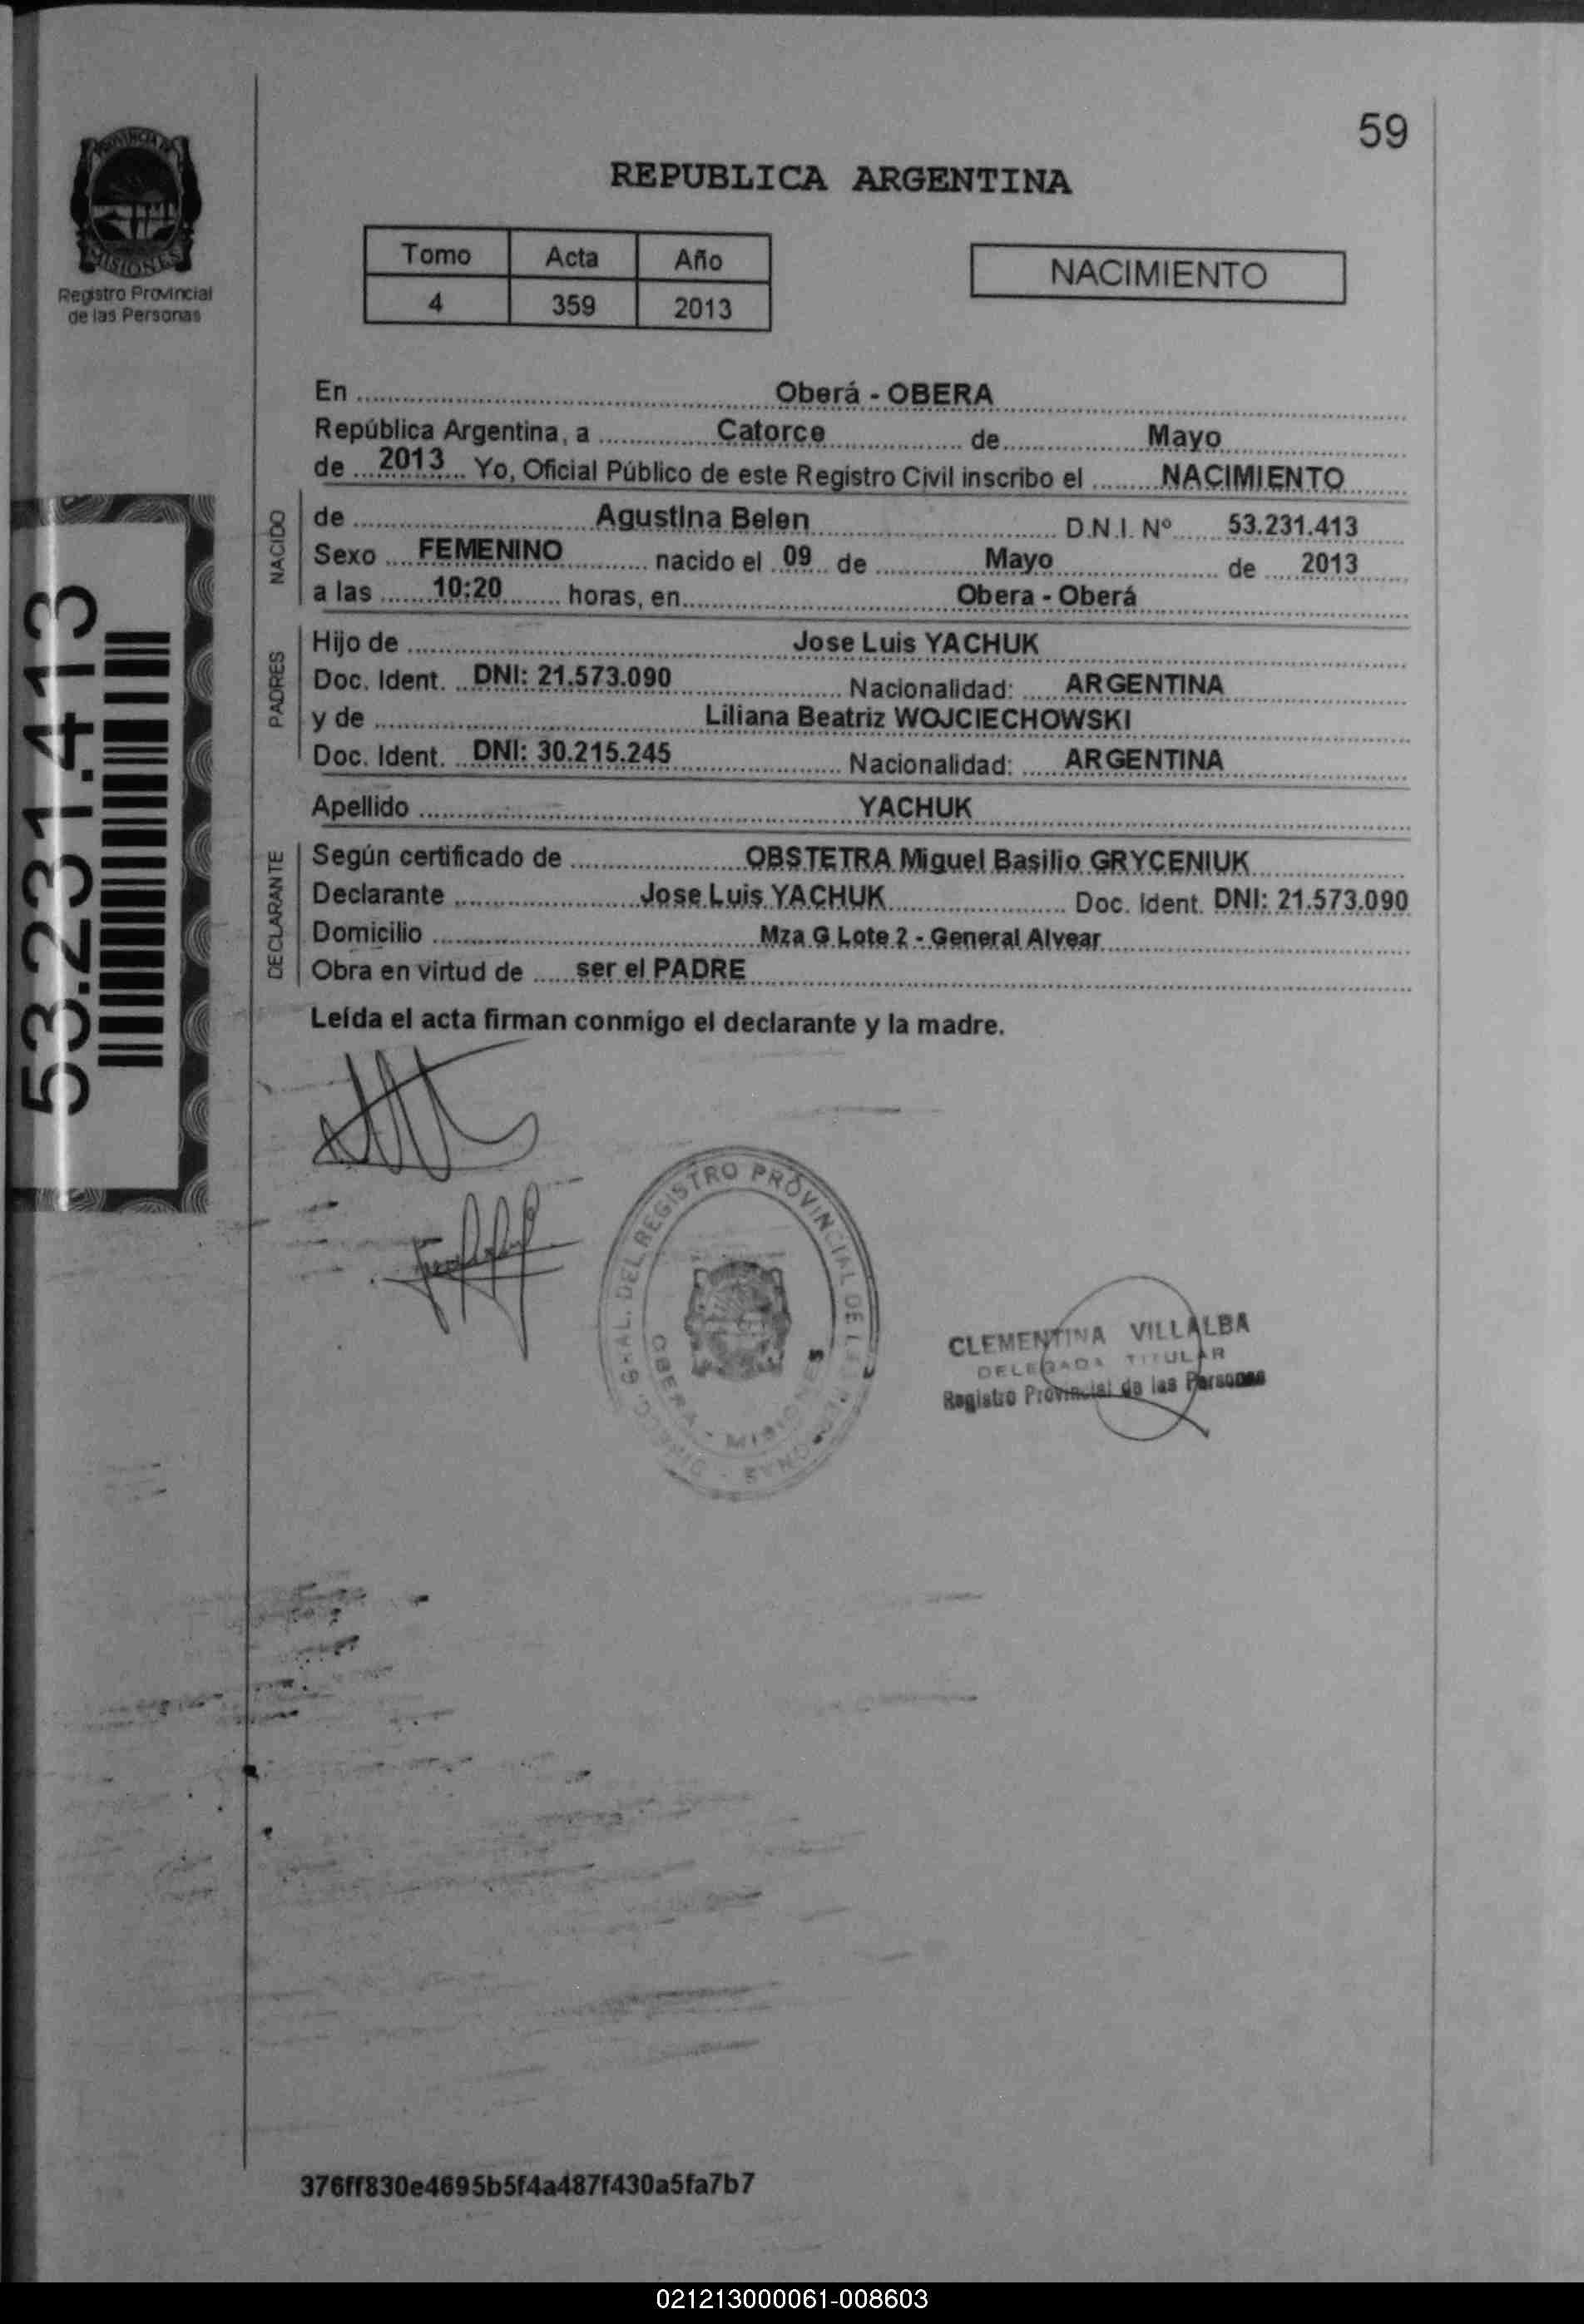 59
REPUBLICA ARGENTINA
PROVINCIA DE
MISIONES
Registro Provincial
de las Personas
Tomo Acta Año
4 359 2013
NACIMIENTO
En Oberá - OBERA
República Argentina, a Catorce de Mayo
de 2013 Yo, Oficial Público de este Registro Civil inscribo el NACIMIENTO
NACIDO
de Agustina Belen D.N.I. Nº 53.231.413
Sexo FEMENINO nacido el 09 de Mayo de 2013
a las 10:20 horas, en Obera - Oberá
PADRES
Hijo de Jose Luis YACHUK
Doc. Ident. DNI: 21.573.090 Nacionalidad: ARGENTINA
y de Liliana Beatriz WOJCIECHOWSKI
Doc. Ident. DNI: 30.215.245 Nacionalidad: ARGENTINA
Apellido YACHUK
DECLARANTE
Según certificado de OBSTETRA Miguel Basilio GRYCENIUK
Declarante Jose Luis YACHUK Doc. Ident. DNI: 21.573.090
Domicilio Mza G Lote 2 - General Alvear
Obra en virtud de ser el PADRE
Leída el acta firman conmigo el declarante y la madre.
53.231.413
GRAL. DEL REGISTRO PROVINCIAL DE
OBERA - MISIONES
CLEMENTINA VILLALBA
DELEGADA TITULAR
Registro Provincial de las Personas
376ff830e4695b5f4a487f430a5fa7b7
021213000061-008603